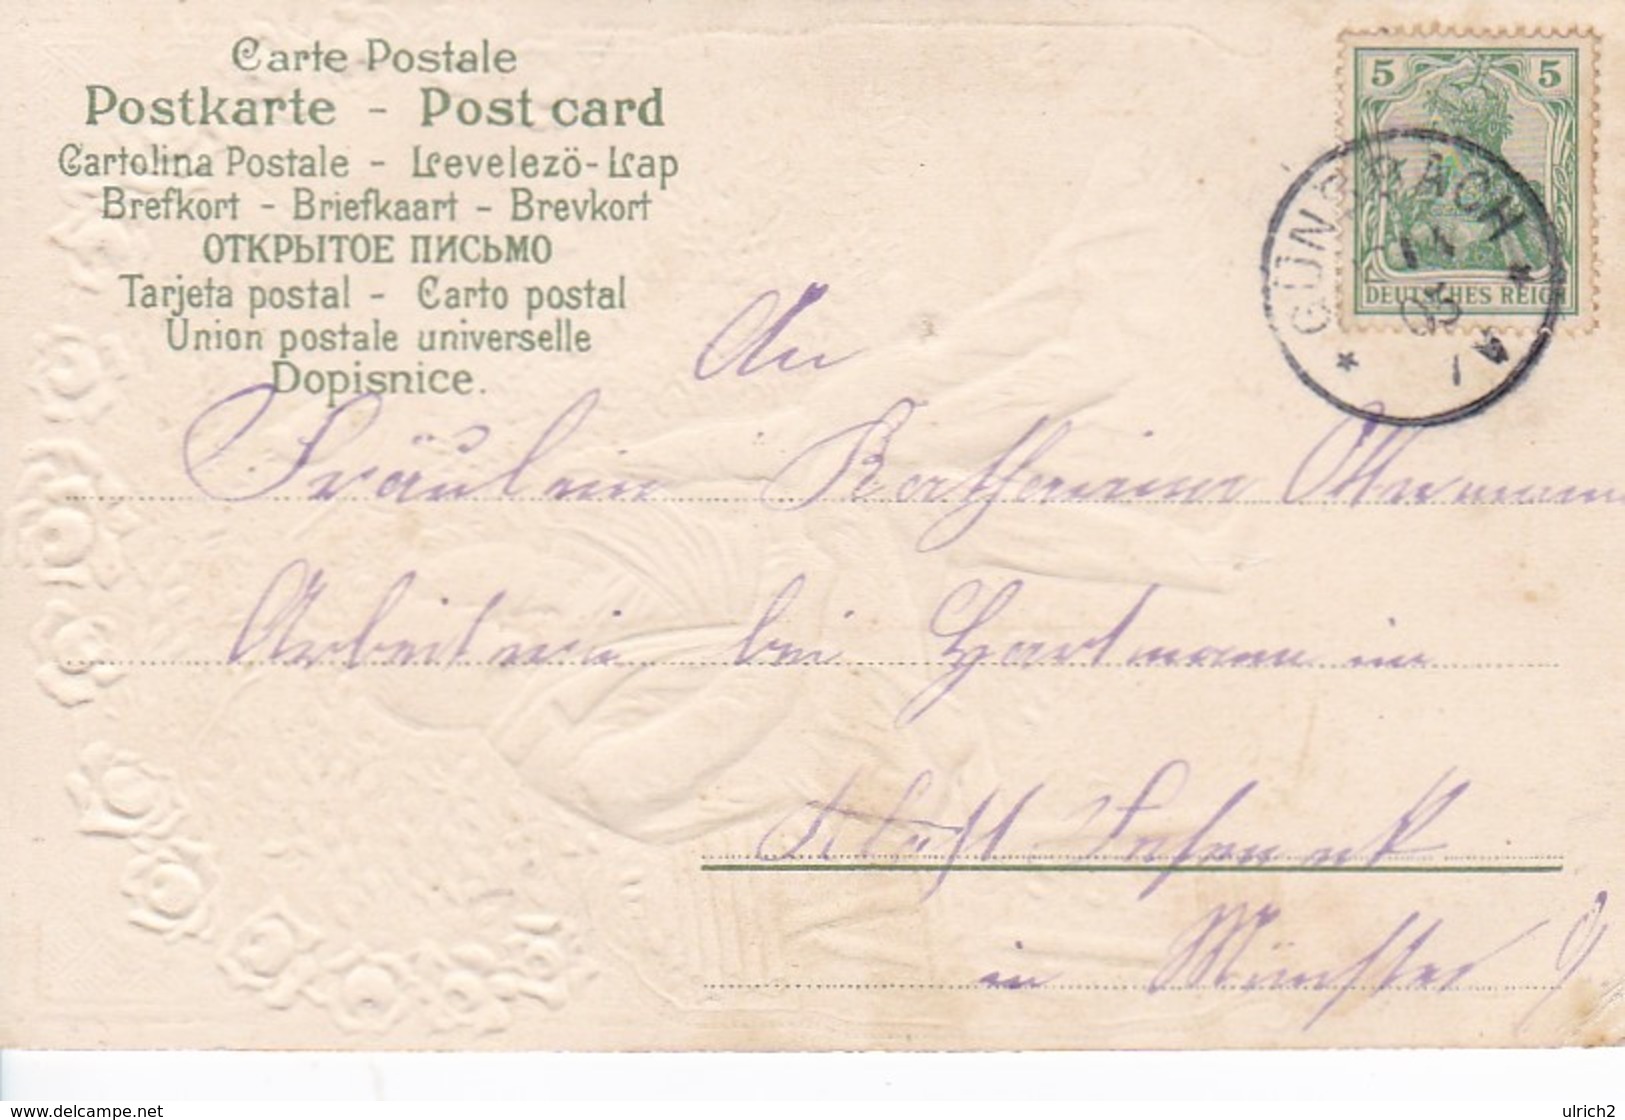 Carte Postale
Postkarte - Post card
Cartolina Postale - Levelezö-Lap
Brefkort - Briefkaart - Brevkort
ОТКРЫТОЕ ПИСЬМО
Tarjeta postal - Carto postal
Union postale universelle
Dopisnice.
5 5
DEUTSCHES REICH
GÜNSBACH
05
An
Fräulein Katharina
Arbeiterin bei Hartmann im
in Münster
https://www.delcampe.net
ulrich2